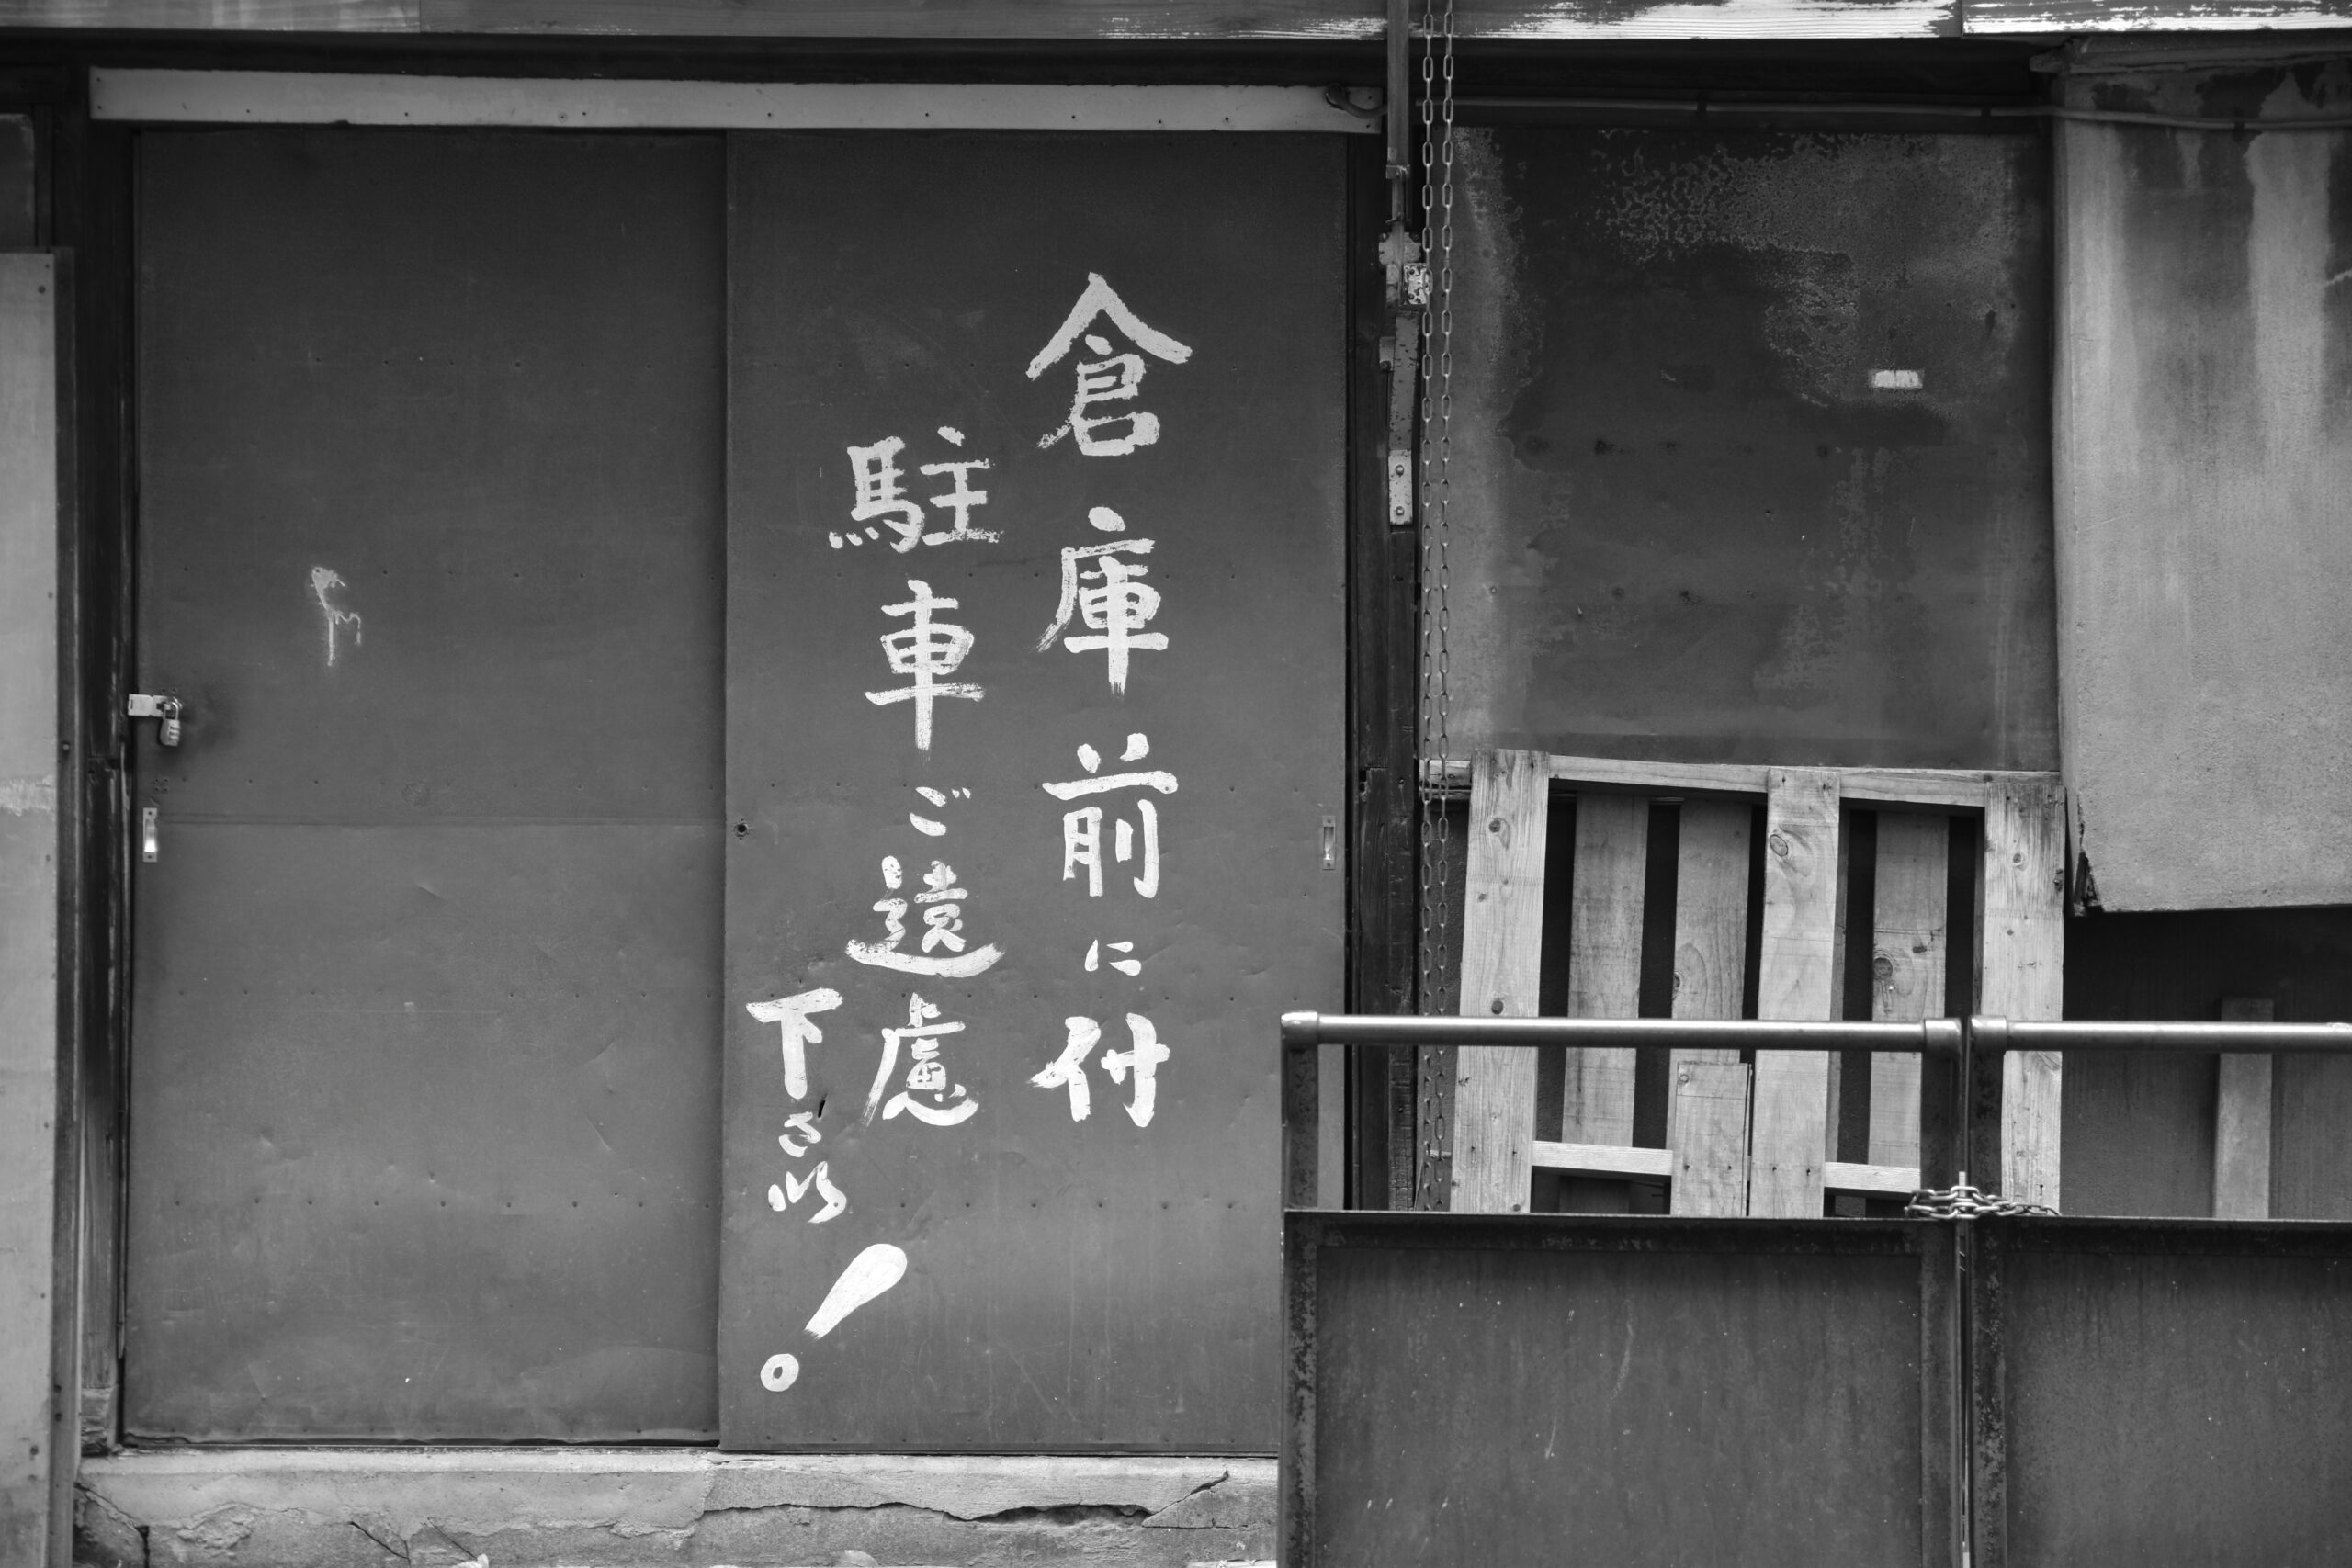 倉庫前に付
駐車ご遠慮
下さい!